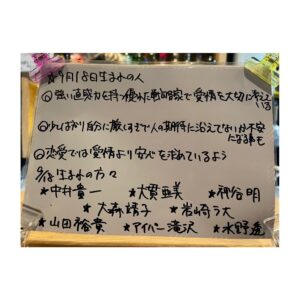 ★9月18日生まれの人
◎強い直感力を持つ優れた戦略家で愛情を大切に考えている
◎少しばかり自分に厳しすぎて人の期待に沿えてないか不安になる事も
◎恋愛では愛情より安心を求めているよう
9/18生まれの方々
★中井貴一 ★大貫亜美 ★神谷明
★大森靖子 ★岩崎う大
★山田裕貴 ★アイパー滝沢 ★水野遼